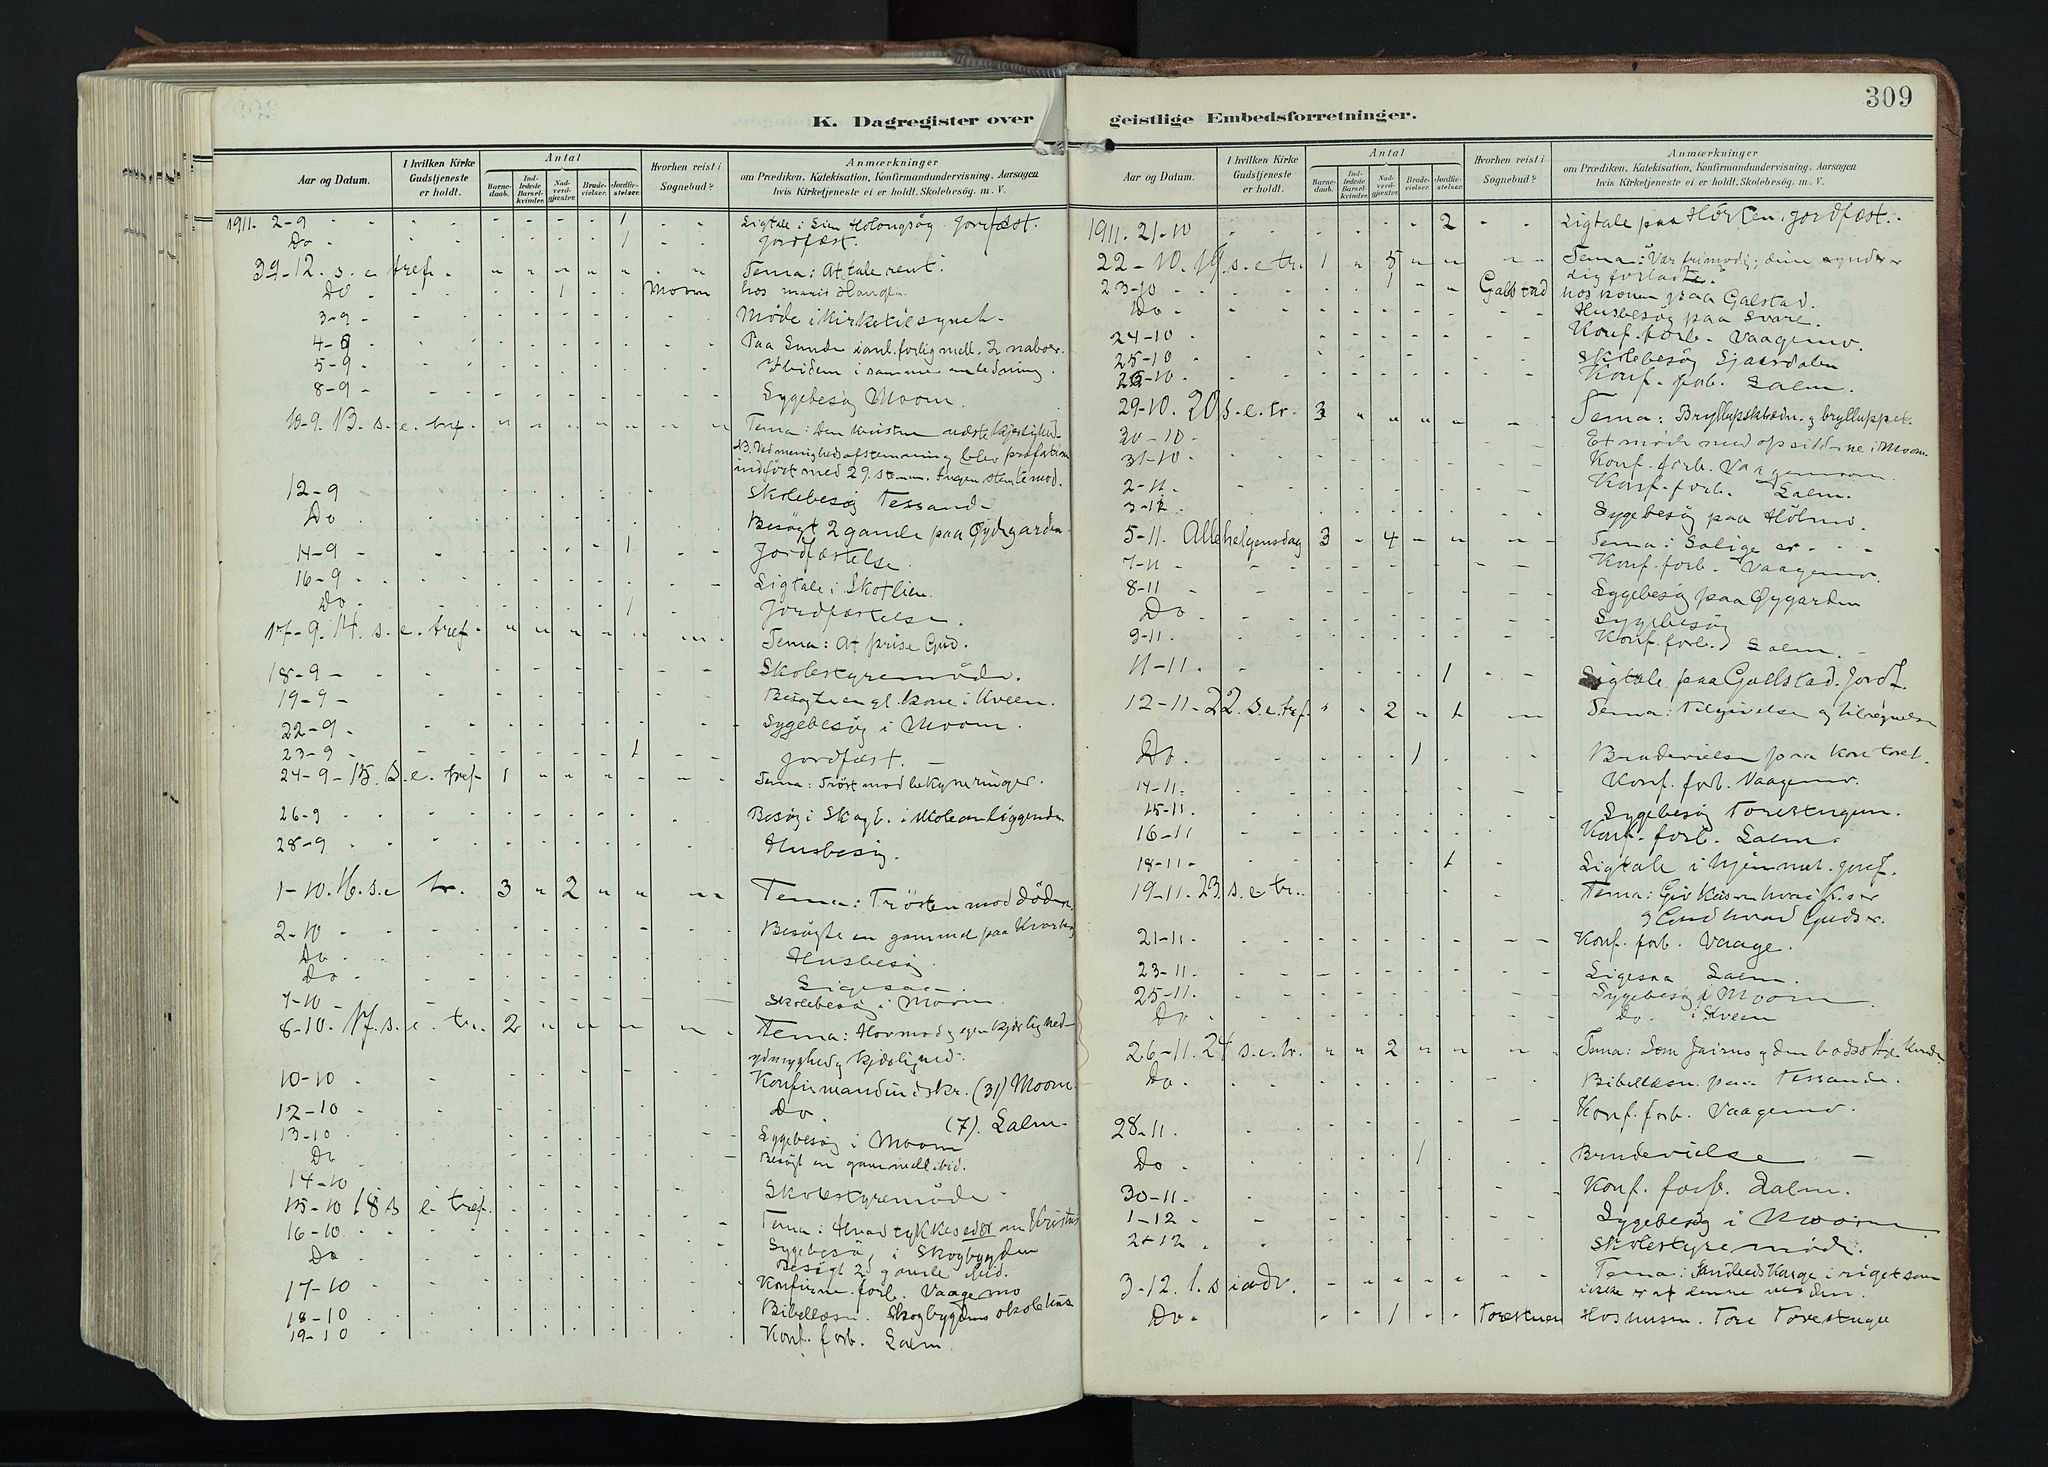 309
K. Dagregister over
geistlige Embedsforretninger.
Aar og Datum.
I hvilken Kirke Gudstjeneste er holdt.
Antal
Barnedaab.
Indledede Barselkvinder.
Nadverdgjæster.
Brudevielser.
Jordfæstelser.
Hvorhen reist i Sognebud?
Anmærkninger
om Prædiken. Katekisation. Konfirmandundervisning. Aarsagen
hvis Kirketjeneste ei er holdt. Skolebesøg. m. V.
1911. 2-9 1 Ligtale i Jordfæst.
Do 1 Jordfæst.
3-9 - 12. s. e. tref. Tema: At tale rent.
Do 1 Moom hos Marit
3-9 Møde i Kirketilsyneh.
4-9 Paa Sunde i anl. forlig mell. 2 naboer.
5-9 Ibidem i samme anledning.
8-9 Sygebesøg Moom.
10-9. 13. s. e. tref. Tema: Den kristne næstekjærlighed.
NB. Ved menighedsafstemning blev
indført med 29 stemm. Ingen stemte mod.
12-9 Skolebesøg Tessand.
Do Besøgt 2 gamle paa Øydegarden.
14-9 1 Jordfæstelse.
16-9 Ligtale i Skotlien.
Do 1 Jordfæstelse.
17-9. 14. s. e. tref. Tema: At prise Gud.
18-9 Skolestyremøde.
19-9 Besøgte en gl. kone i Kveen.
22-9 Sygebesøg i Moom.
23-9 1 Jordfæst.
24-9 - 15. s. e. tref. 1 Tema: Trøst mod bekymringer.
26-9 Besøg i Skogb. i skoleanliggender
28-9 Husbesøg.
1-10. 16. s. e. tr. 3 2 Tema: Trøsten mod døden.
2-10 Besøgte en gammel paa Kvarberg
Do Husbesøg
Do Ligesaa
7-10 Skolebesøg i Moom.
8-10. 17. s. e. tr. 2 Tema: Hovmod og egenkjærlighed -
ydmyghed og kjærlighed.
10-10 Konfirmandindskr. (31) Moom.
12-10 Do (7). Lalm.
13-10 Sygebesøg i Moom
Do Besøgt en gammel ibid.
14-10 Skolestyremøde
15-10 18 s e. tref. Tema: Hvad tykkes eder om Kristus
16-10 Sygebesøg i Skogbygden
Do Besøgt 2 gamle ibid.
17-10 Konfirm. forb. Vaagemo
18-10 Bibellæsn. Skogbygdens skolehus
19-10 Konf. forb. Lalm
Aar og Datum.
I hvilken Kirke Gudstjeneste er holdt.
Antal
Barnedaab.
Indledede Barselkvinder.
Nadverdgjæster.
Brudevielser.
Jordfæstelser.
Hvorhen reist i Sognebud?
Anmærkninger
om Prædiken. Katekisation. Konfirmandundervisning. Aarsagen
hvis Kirketjeneste ei er holdt. Skolebesøg. m. V.
1911. 21-10 2 Ligtale paa Jordfæst.
22-10. 19. s. e. tr. 1 5 Tema: Vær frimodig; dine synder er
dig forladte.
23-10 1 Galstad hos konen paa Galstad.
Do Husbesøg paa Svare.
24-10 Konf. forb. Vaagemo.
25-10 Skolebesøg Sjaardalen
26-10 Konf. forb. Lalm.
29-10. 20 s. e. tr. 3 Tema: Bryllupsklædn. og brylluppet.
30-10 Et møde med opsidderne i Moom.
31-10 Konf. forb. Vaagemo
2-11 Konf. forb. Lalm.
3-12 Sygebesøg paa Hølmo.
5-11. Allehelgensdag 3 4 Tema: Salige er - - -
7-11 Konf. forb. Vaagemo.
8-11 Sygebesøg paa Øygarden
Do Sygebesøg
9-11. Konf. forb. Lalm.
11-11. 1 Ligtale paa Gallstad. Jordf.
12-11 - 22. s. e. tref. 2 1 Tema: Tilgivelse og tilregnelse
Do. 1 Brudevielse paa kontoret.
14-11. Konf. forb. Vaagemo.
15-11. Sygebesøg
16-11 Konf. forb. Lalm.
18-11 1 Ligtale i hjemmet. Jordf.
19-11. 23 s. e. tr. Tema: Giv Keiseren hvad K.s er
og Gud hvad Guds er.
21-11. Konf. forb. Vaage.
23-11 Ligesaa Lalm.
25-11. Sygebesøg i Moom
Do Do. i Kveen
26-11. 24 s. e. tr. 2 Tema: Som Jairus og den
Do Bibellæsn. paa Tessande.
28-11. Konf. forb. Vaagemo.
Do 1 Brudevielse
30-11. Konf. forb. Lalm.
1-12 Sygebesøg i Moom
2-12 Skolestyremøde.
3-12. 1. s i adv. Tema: Sandheds Konge i riget som
ikke er af denne verden.
Do 1 Hos Tore